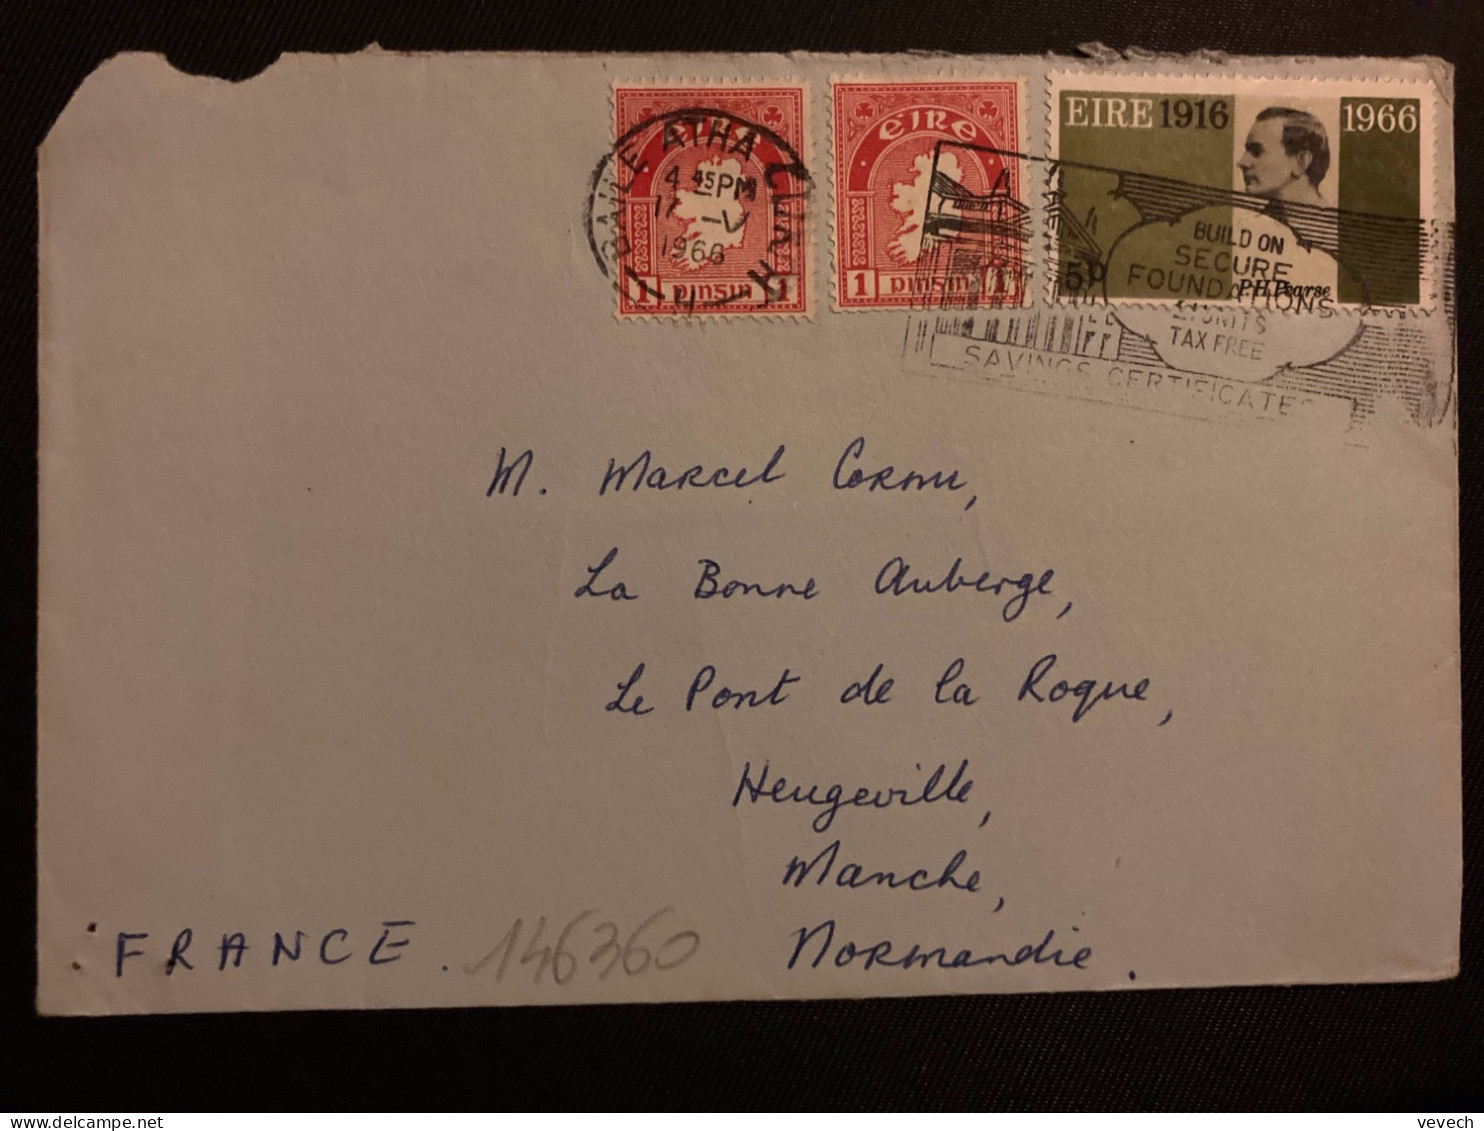 EIRE
EIRE
EIRE 1916 1966
BAILE ATHA CLIATH
4 45PM
17 -V
1966
1 pinsin 1
1 pinsin 1
5p
P.H. Pearse
BUILD ON
SECURE
FOUNDATIONS
UNITS
TAX FREE
SAVINGS CERTIFICATES
M. Marcel Cornu,
La Bonne Auberge,
Le Pont de la Roque,
Heugeville,
Manche,
Normandie.
FRANCE.
146360
vevech